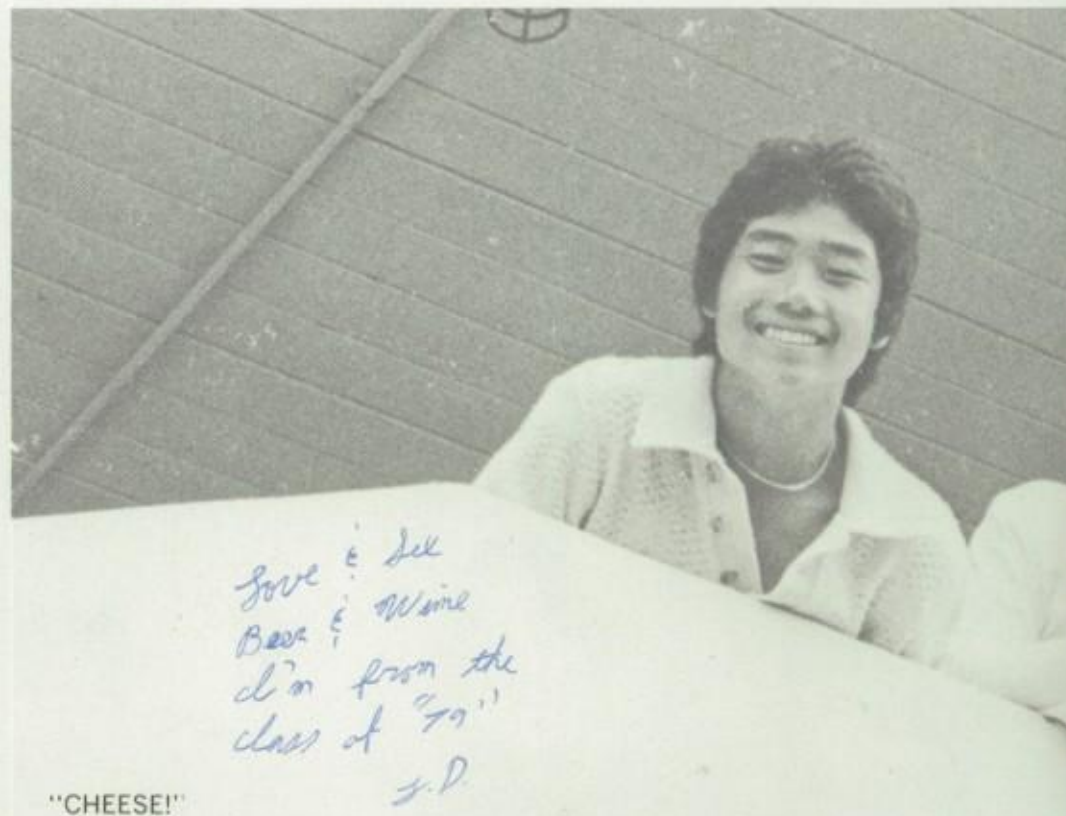 Love & Sex
Beer & Wine
I'm from the
class of "79"
"CHEESE!"